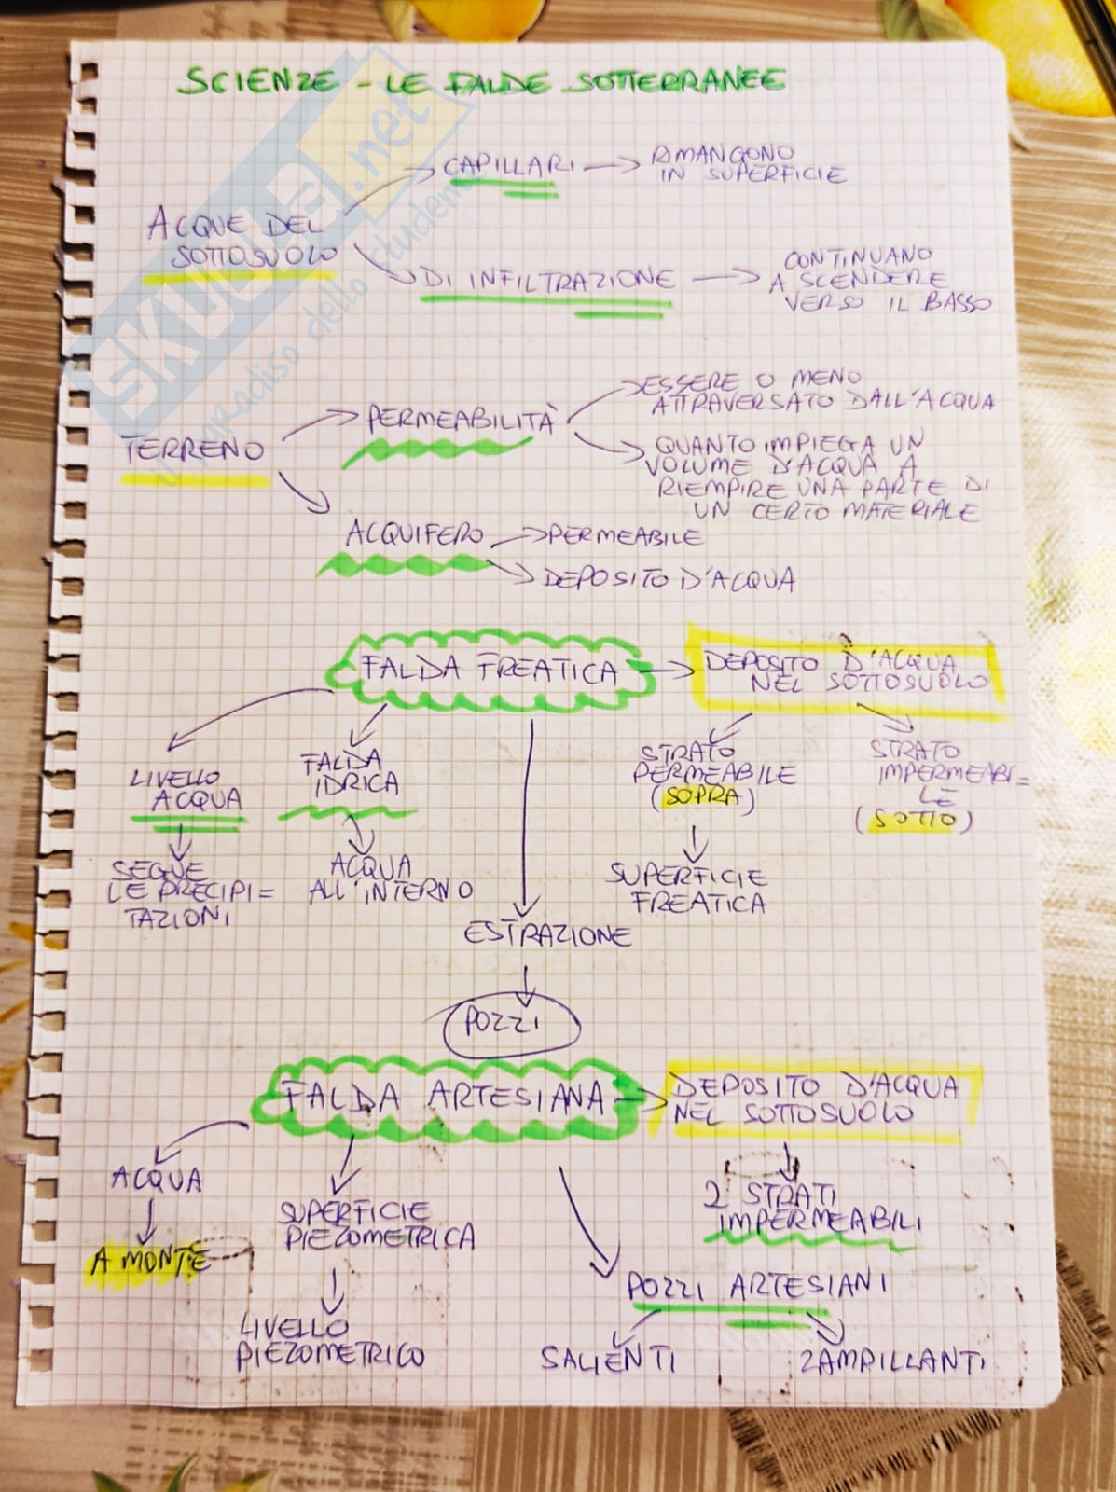 SCIENZE - LE FALDE SOTTERRANEE
ACQUE DEL
SOTTOSUOLO
CAPILLARI
RIMANGONO
IN SUPERFICIE
DI INFILTRAZIONE
CONTINUANO
A SCENDERE
VERSO IL BASSO
SKUOLA.net
il paradiso dello studente
TERRENO
PERMEABILITÀ
ESSERE O MENO
ATTRAVERSATO DALL'ACQUA
QUANTO IMPIEGA UN
VOLUME D'ACQUA A
RIEMPIRE UNA PARTE DI
UN CERTO MATERIALE
ACQUIFERO
PERMEABILE
DEPOSITO D'ACQUA
FALDA FREATICA
DEPOSITO D'ACQUA
NEL SOTTOSUOLO
LIVELLO
ACQUA
SEGUE
LE PRECIPI=
TAZIONI
FALDA
IDRICA
ACQUA
ALL'INTERNO
STRATO
PERMEABILE
(SOPRA)
SUPERFICIE
FREATICA
STRATO
IMPERMEABI=
LE
(SOTTO)
ESTRAZIONE
POZZI
FALDA ARTESIANA
DEPOSITO D'ACQUA
NEL SOTTOSUOLO
ACQUA
A MONTE
SUPERFICIE
PIEZOMETRICA
LIVELLO
PIEZOMETRICO
2 STRATI
IMPERMEABILI
POZZI ARTESIANI
SALIENTI
ZAMPILLANTI